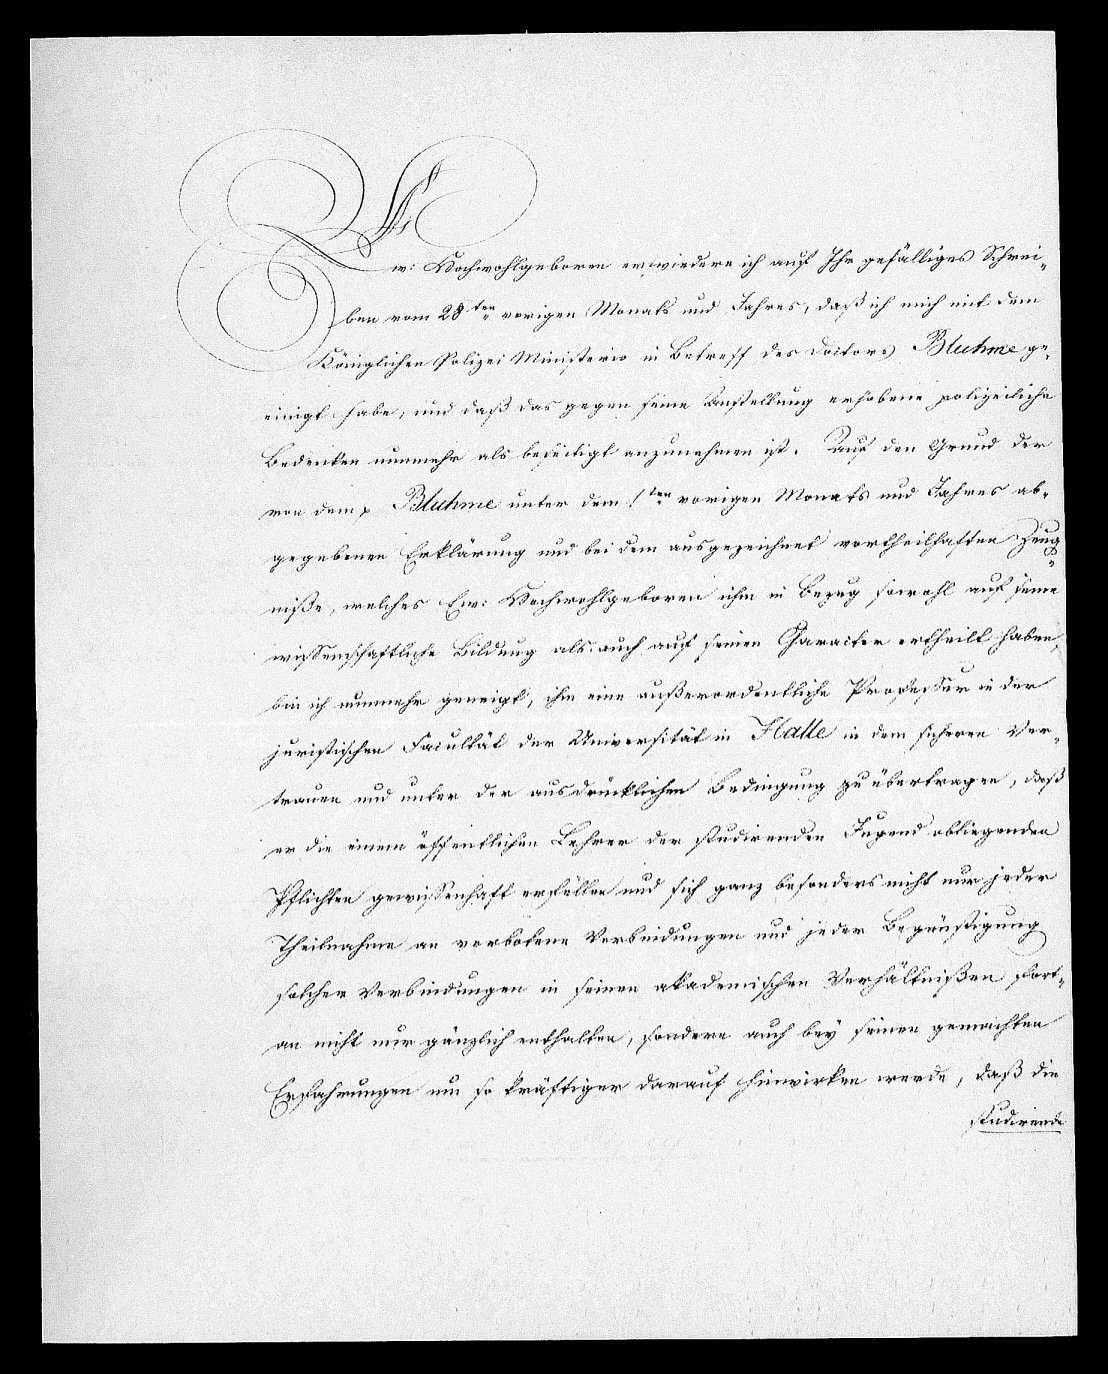 Ew: Hochwohlgeboren erwiedere ich auf Ihr gefälliges Schrei-
ben vom 28ten vorigen Monats und Jahres, daß ich mich mit dem
Königlichen Polizei Ministerio in Betreff des Doctors Bluhme ge-
einigt habe, und daß das gegen seine Anstellung erhobene polizeiliche
Bedenken nunmehr als beseitigt anzunehmen ist. Auf den Grund der
von dem p Bluhme unter dem 1ten vorigen Monats und Jahres ab-
gegebenen Erklärung und bei dem ausgezeichnet vortheilhaften Zeug-
niße, welches Ew: Hochwohlgeboren ihm in Bezug sowohl auf seine
wissenschaftliche Bildung als auch auf seinen Character ertheilt haben,
bin ich nunmehr geneigt, ihm eine außerordentliche Professur in der
juristischen Facultät der Universität in Halle in dem sicheren Ver-
trauen und unter der ausdrücklichen Bedingung zu übertragen, daß
er die einem öffentlichen Lehrer der studirenden Jugend obliegenden
Pflichten gewissenhaft erfüllen und sich ganz besonders nicht nur jeder
Theilnahme an verbotene Verbindungen und jeder Begünstigung
solcher Verbindungen in seinen akademischen Verhältnißen fort-
an nicht nur gänzlich enthalten, sondern auch bey seinen gemachten
Erfahrungen um so kräftiger darauf hinwirken werde, daß die
studirende